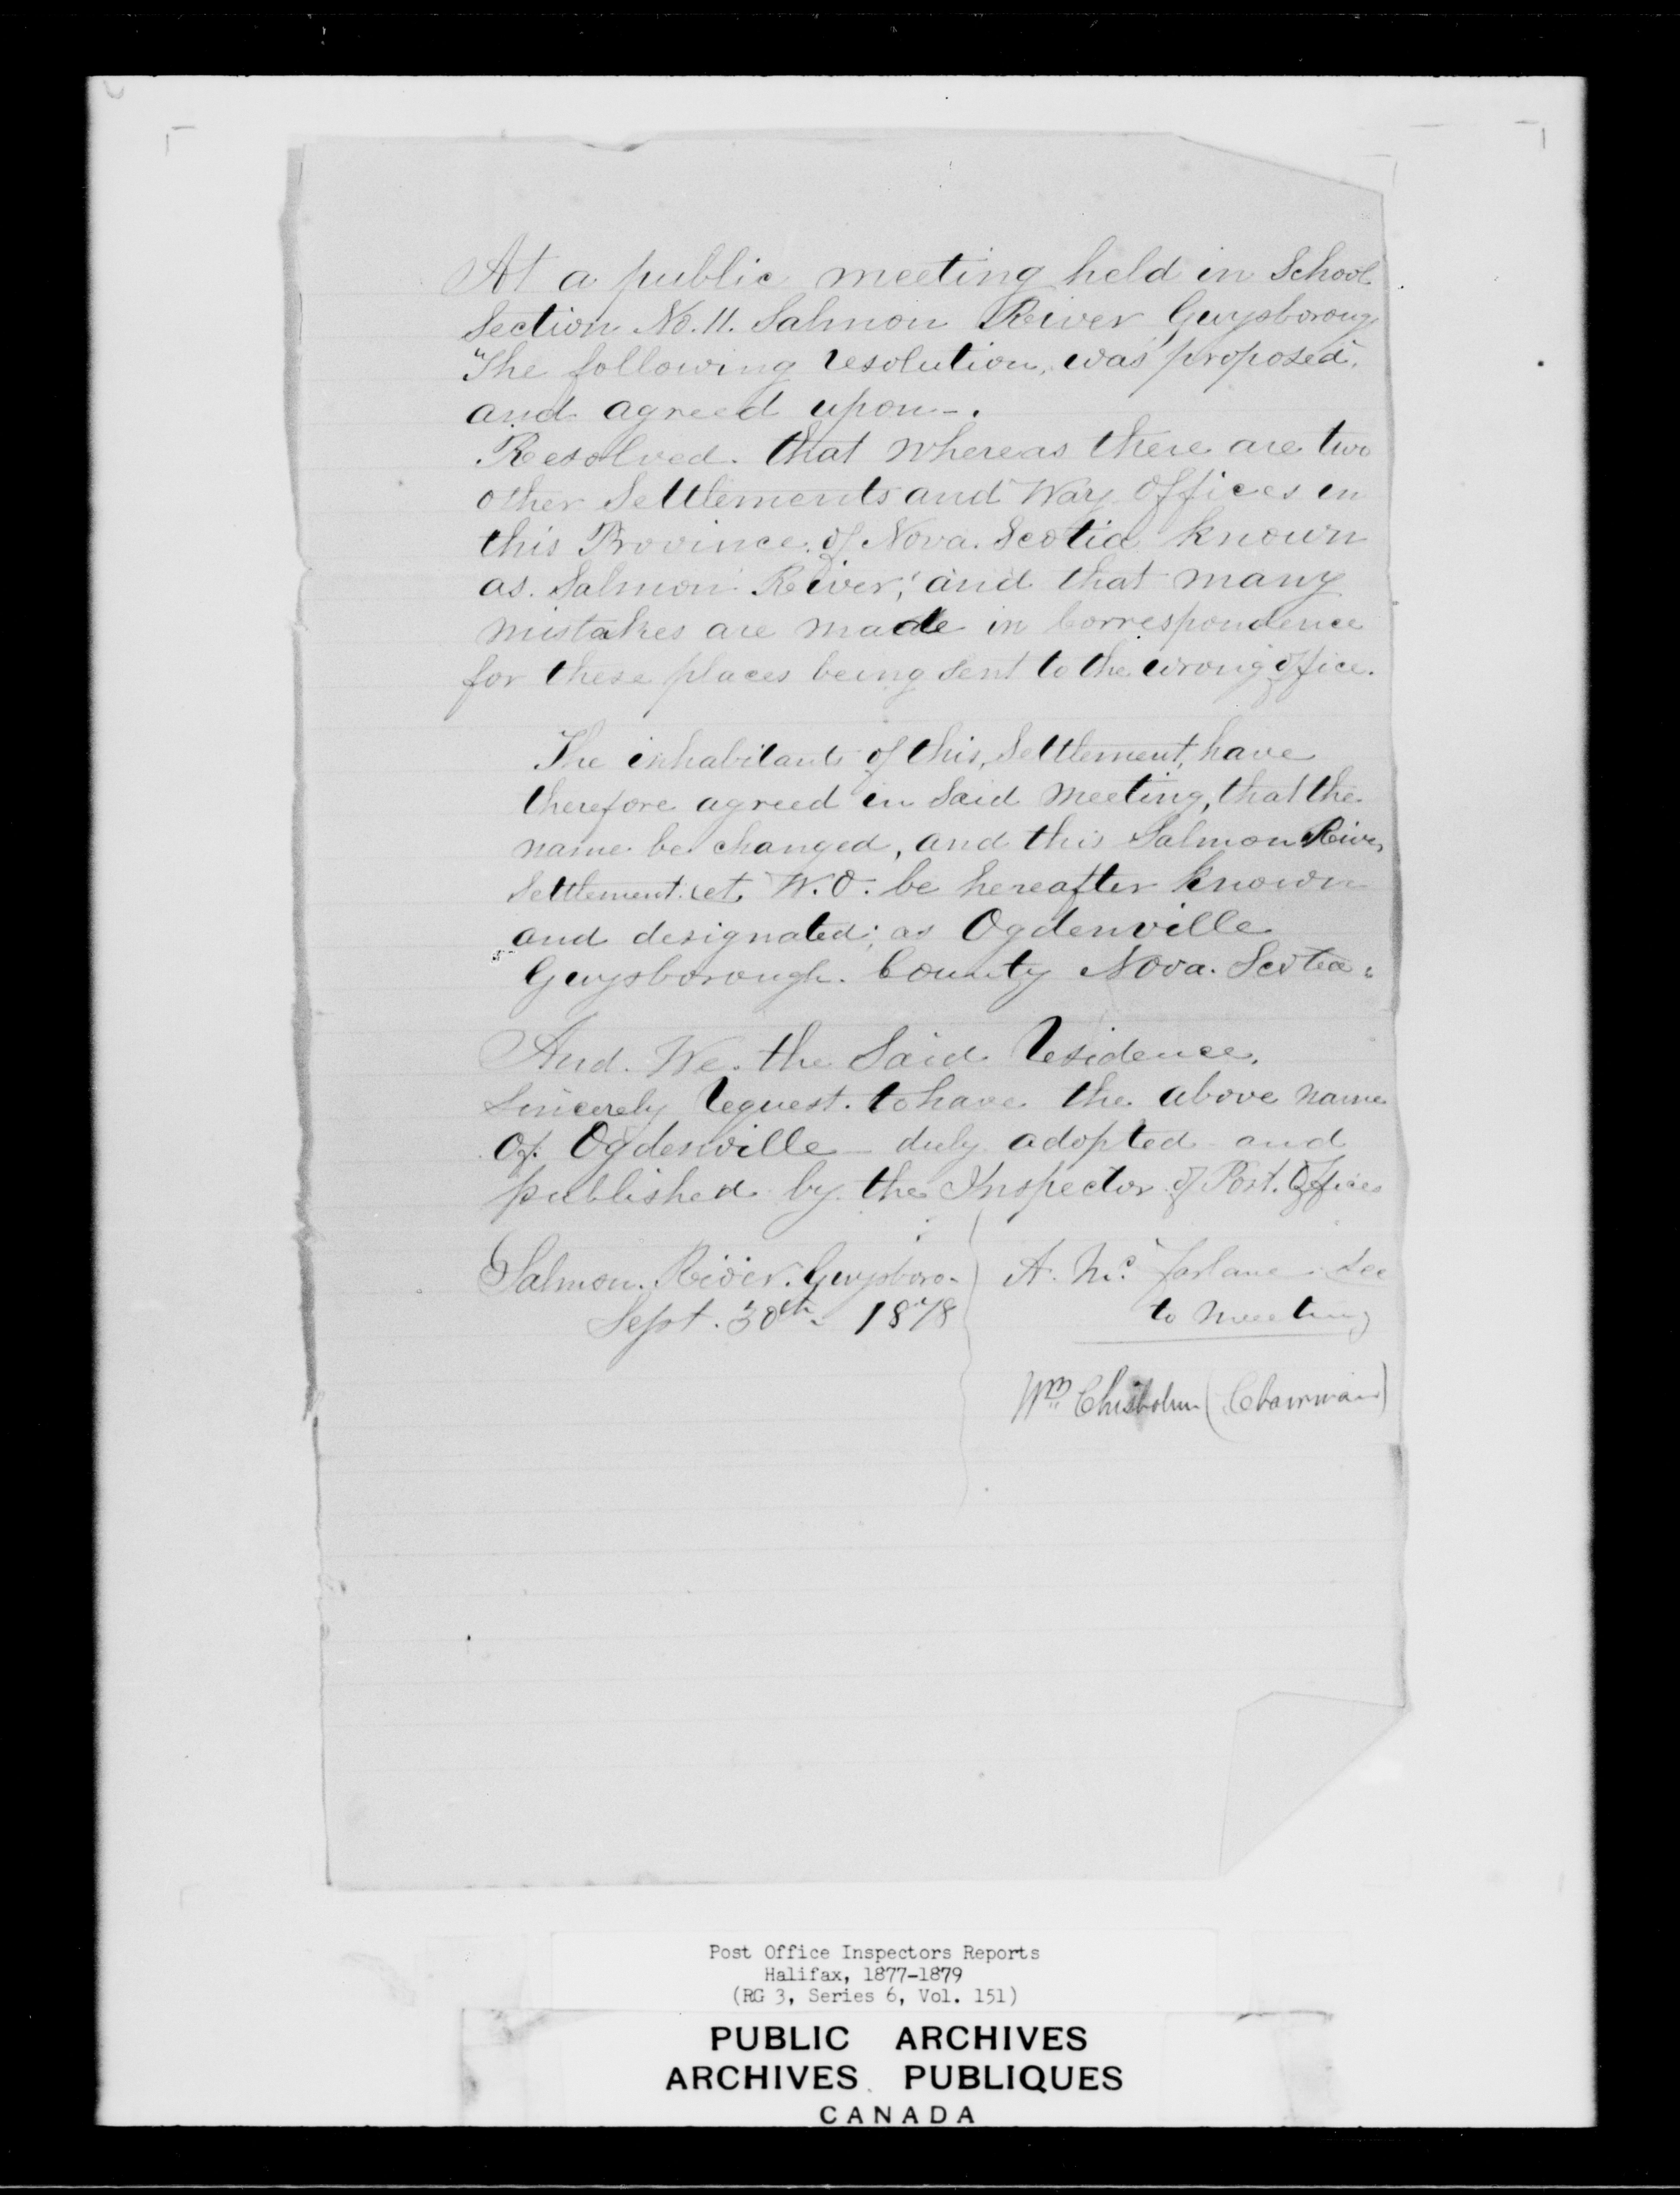 At a public meeting held in School
Section No. 11. Salmon River, Guysboroug
"The following resolution, was proposed,
and agreed upon-.
Resolved. that whereas there are two
other Settlements and Way Offices in
this Province of Nova. Scotia known
as. Salmon River, and that many
mistakes are made in Correspondence
for these places being sent to the wrong office.
The inhabitants of this, Settlement, have
therefore agreed in Said Meeting, that the
name be changed, and this Salmon River
Settlement et W.O. be hereafter known
and designated; as Ogdenville
Guysborough. County Nova. Scotia.
And. We. the Said Residence.
Sincerely request. to have the above name
of. Ogdenville duly adopted and
published by the Inspector of Post. Offices
Salmon. River. Guysboro.
Sept. 30th. 1878
A. Mc. farlane Sec
to Meeting
Wm Chisholm (Chairman)
Post Office Inspectors Reports
Halifax, 1877-1879
(RG 3, Series 6, Vol. 151)
PUBLIC ARCHIVES
ARCHIVES PUBLIQUES
CANADA